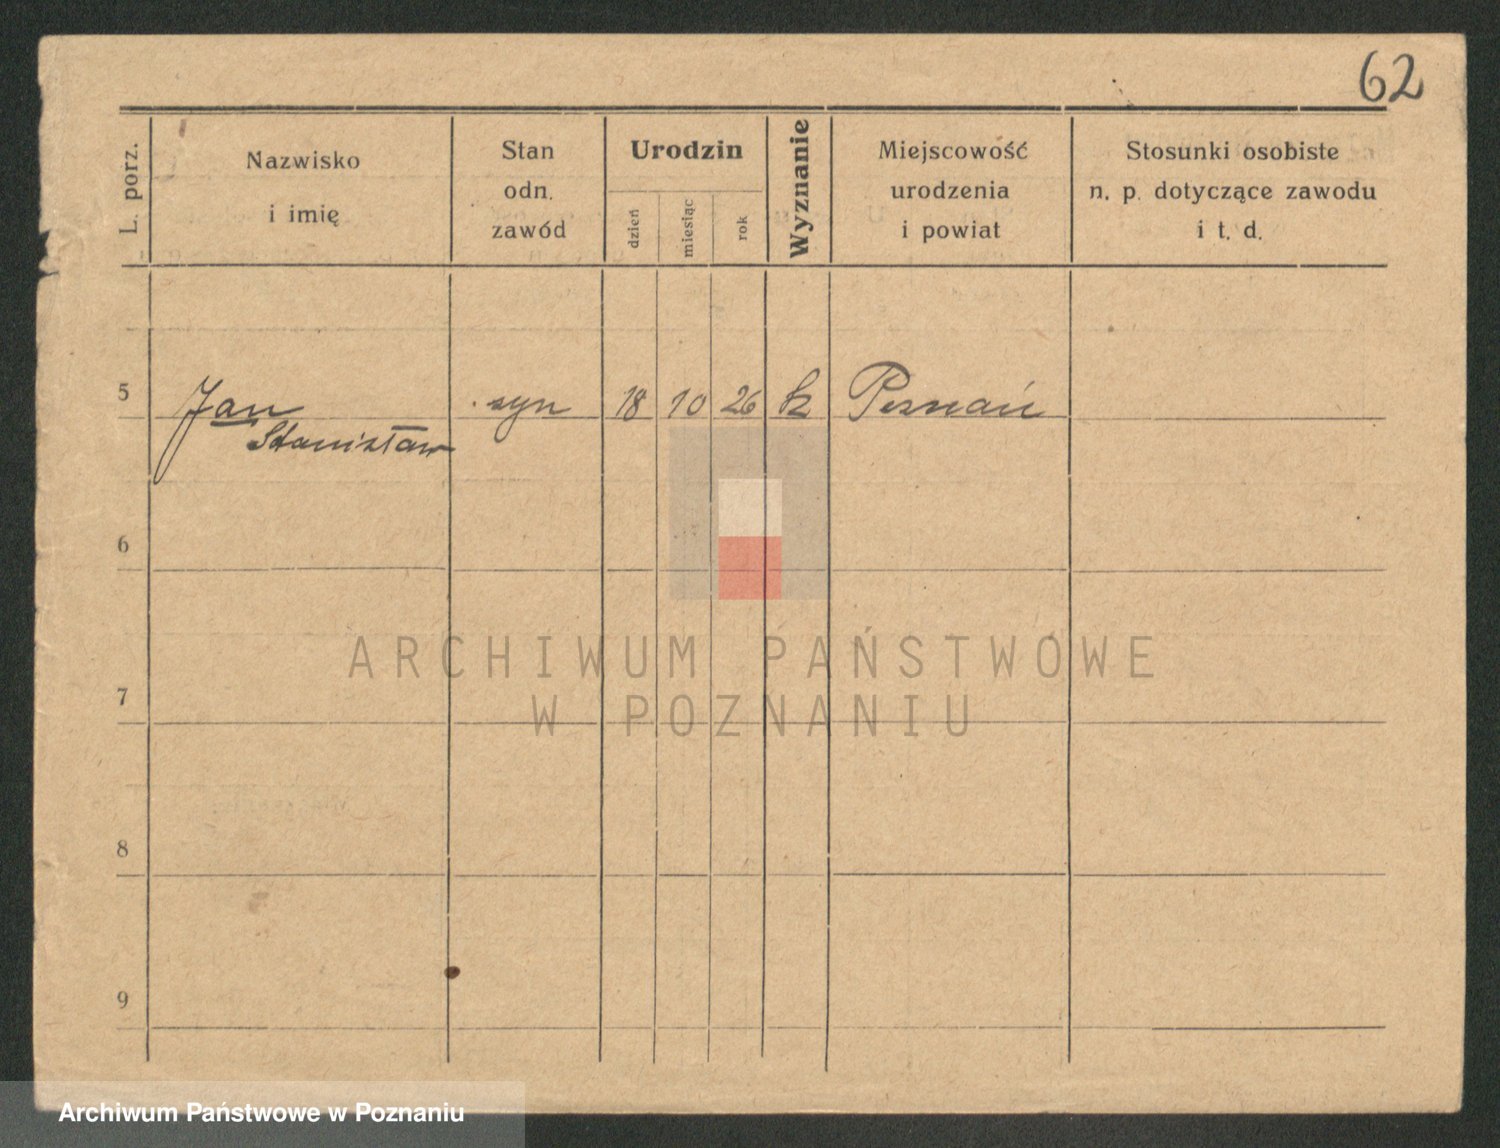 62
L. porz.
Nazwisko
i imię
Stan
odn.
zawód
Urodzin
dzień
miesiąc
rok
Wyznanie
Miejscowość
urodzenia
i powiat
Stosunki osobiste
n. p. dotyczące zawodu
i t. d.
5 Jan syn 18 10 26 k Poznań
Stanisław
6
7
8
9
ARCHIWUM PAŃSTWOWE
W POZNANIU
Archiwum Państwowe w Poznaniu